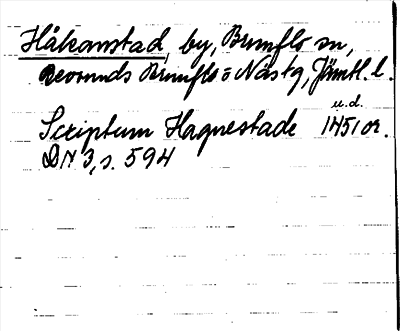 Håkanstad, by, Brunflo sn,
Revsunds Brunflo o Näs tg, Jämtl. l.
u.d.
Scriptum Haqnestade 1451 or.
DN 3, s. 594